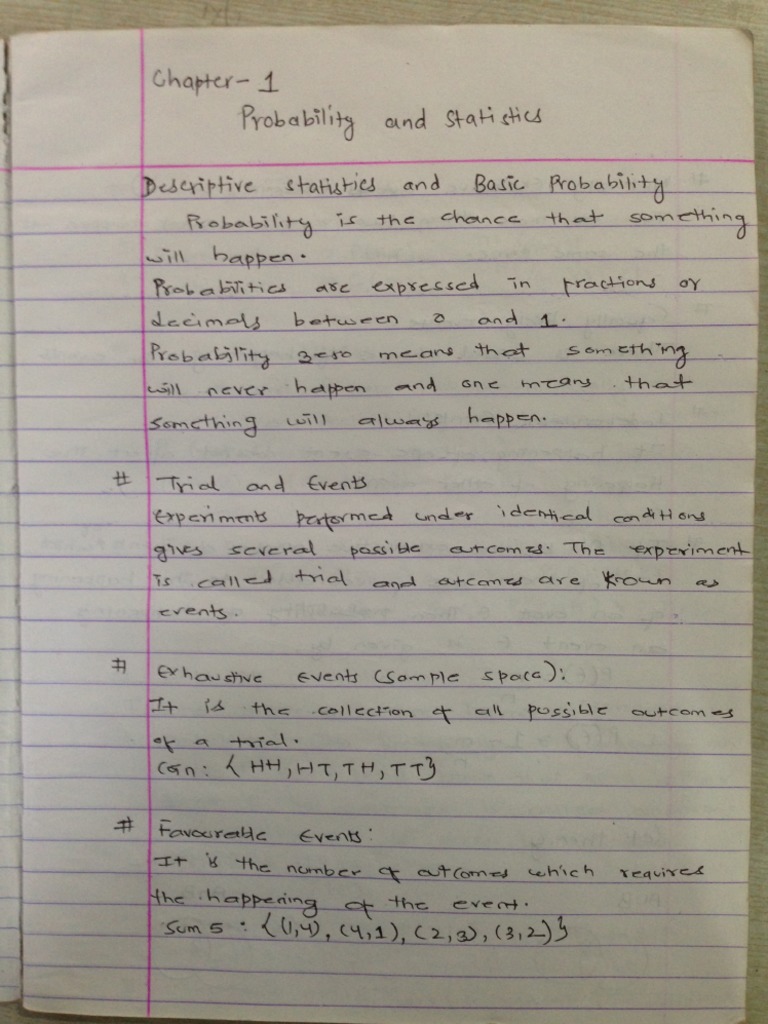 Chapter-1
Probability and Statistics
Descriptive statistics and Basic Probability
Probability is the chance that something
will happen.
Probabilities are expressed in fractions or
decimals between 0 and 1.
Probability zero means that something
will never happen and one means that
something will always happen.
# Trial and Events
Experiments performed under identical conditions
gives several possible outcomes. The experiment
is called trial and outcomes are known as
events.
# Exhaustive Events (Sample space):
It is the collection of all possible outcomes
of a trial.
Coin: {HH, HT, TH, TT}
# Favourable Events:
It is the number of outcomes which requires
the happening of the event.
Sum 5 : {(1,4), (4,1), (2,3), (3,2)}